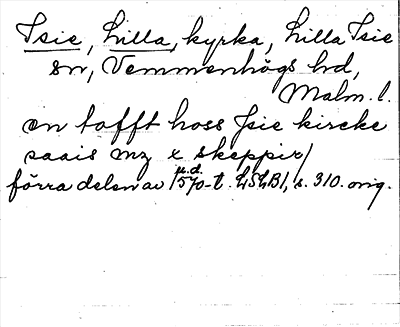 Isie, Lilla, kyrka, Lilla Isie
sn, Vemmenhögs hd,
Malm. l.
en tofft hoss Isie kircke
saais mz x skeppir/
u.d.
förra delen av 1570-t. LSLB1, s. 310. orig.